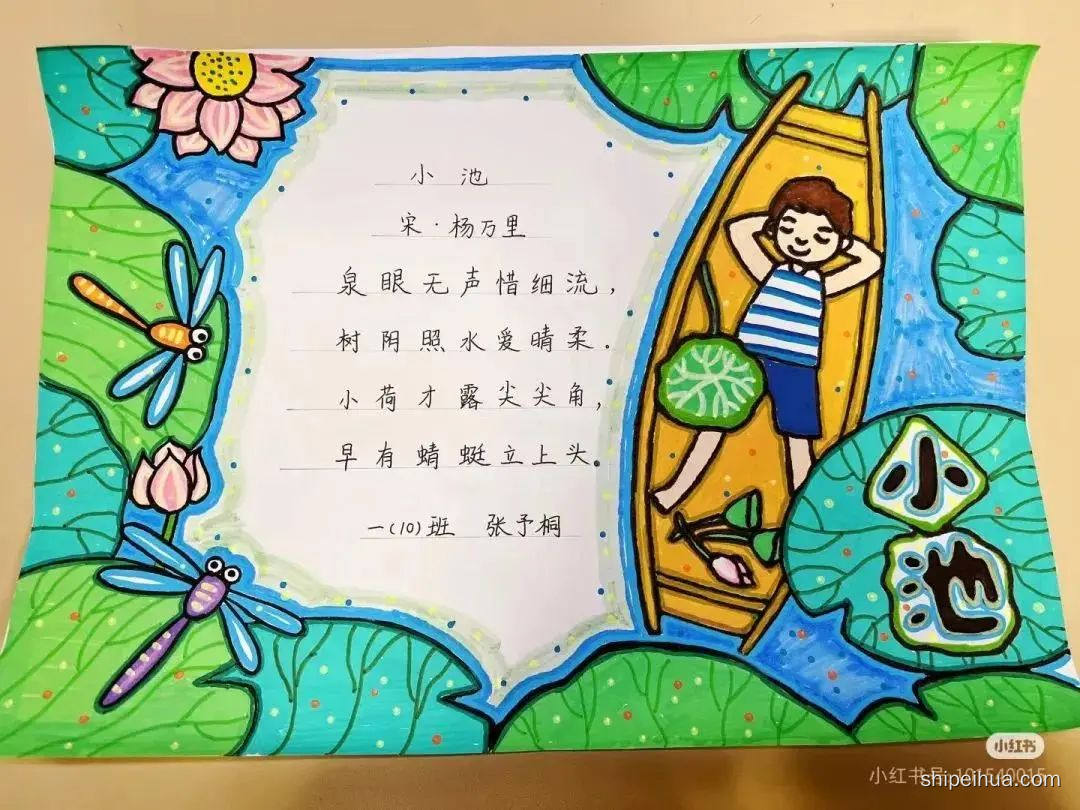 小池
宋·杨万里
泉眼无声惜细流，
树阴照水爱晴柔.
小荷才露尖尖角，
早有蜻蜓立上头.
一(10)班 张予桐
小池
小红书
小红书号: 101540015
shipeihua.com